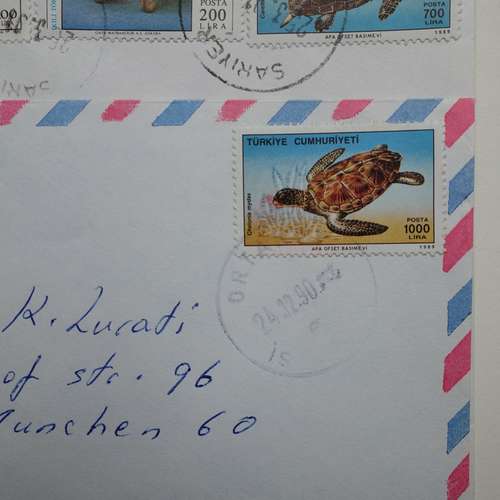 POSTA
200
LIRA
POSTA
700
LIRA
APA OFSET BASIMEVİ 1989
SARIYER
TÜRKİYE CUMHURİYETİ
Chelonia mydas
POSTA
1000
LIRA
APA OFSET BASIMEVİ 1989
24.12.90
K. Lucati
of str. 96
München 60